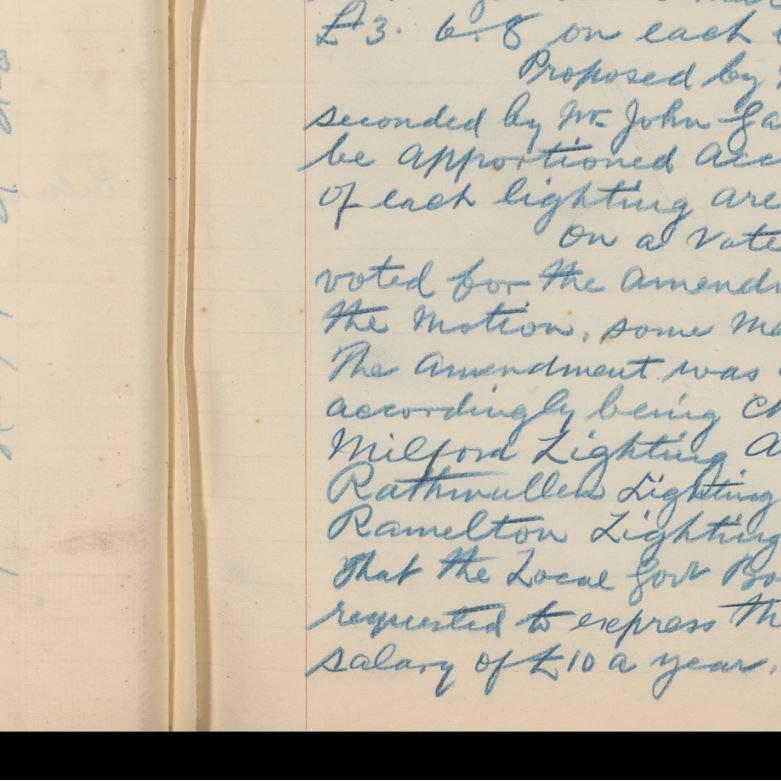 £3. 6. 8 on each
Proposed by
seconded by Mr. John Ga
be apportioned acc
of each lighting are
On a vote
voted for the Amendm
the Motion, some Me
The Amendment was
accordingly being Ch
Milford Lighting A
Rathmullen Lighting
Ramelton Lighting
That the Local Govt Bo
requested to express th
salary of £10 a year.